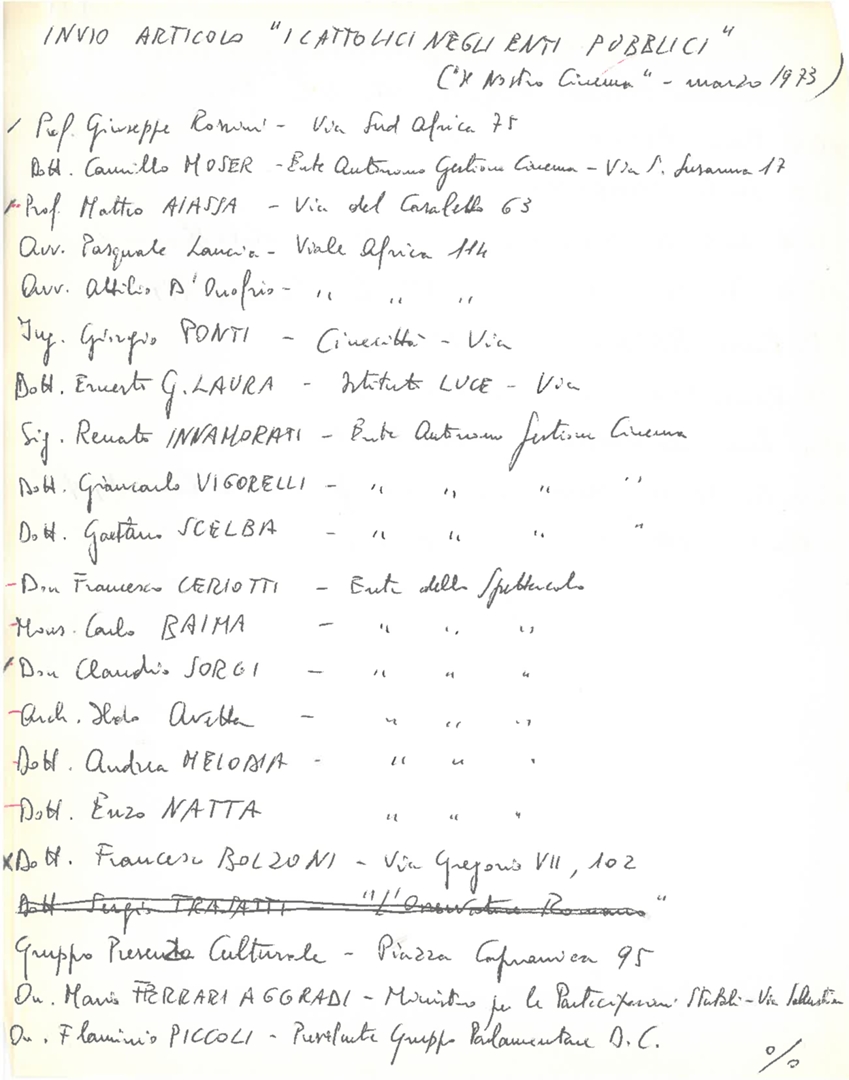 INVIO ARTICOLO "I CATTOLICI NEGLI ENTI PUBBLICI"
("Il Nostro Cinema" - marzo 1973)
/ Prof. Giuseppe Rossini - Via Sud Africa 75
Dott. Camillo MOSER - Ente Autonomo Gestione Cinema - Via S. Susanna 17
Prof. Matteo AIASSA - Via del Casaletto 63
Avv. Pasquale Lancia - Viale Africa 114
Avv. Attilio D'Onofrio - " " "
Ing. Giorgio PONTI - Cinecittà - Via
Dott. Ernesto G. LAURA - Istituto LUCE - Via
Sig. Renato INNAMORATI - Ente Autonomo Gestione Cinema
Dott. Giancarlo VIGORELLI - " " " "
Dott. Gaetano SCELBA - " " " "
- Don Francesco CERIOTTI - Ente dello Spettacolo
- Mons. Carlo BAIMA - " " "
/ Don Claudio SORGI - " " "
- Arch. Ildo Avetta - " " "
- Dott. Andrea MELODIA - " " "
- Dott. Enzo NATTA " " "
x Dott. Francesco BOLZONI - Via Gregorio VII, 102
Dott. Sergio TRASATTI - "L'Osservatore Romano"
Gruppo Presenza Culturale - Piazza Capranica 95
On. Mario FERRARI AGGRADI - Ministro per le Partecipazioni Statali - Via Sallustiana
On. Flaminio PICCOLI - Presidente Gruppo Parlamentare D.C.
%